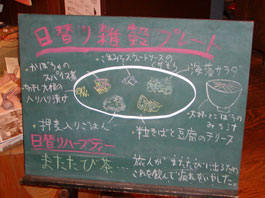 日替り雑穀プレート
かぼちゃの
スパイス煮
海藻サラダ
切干し大根の
大根とごぼうの
みそ汁
押麦入りごはん
粒そばと豆腐のテリーヌ
日替りハーブティー
またたび茶…
旅人がまたたびに出るため
これを飲んで疲れをいやした。